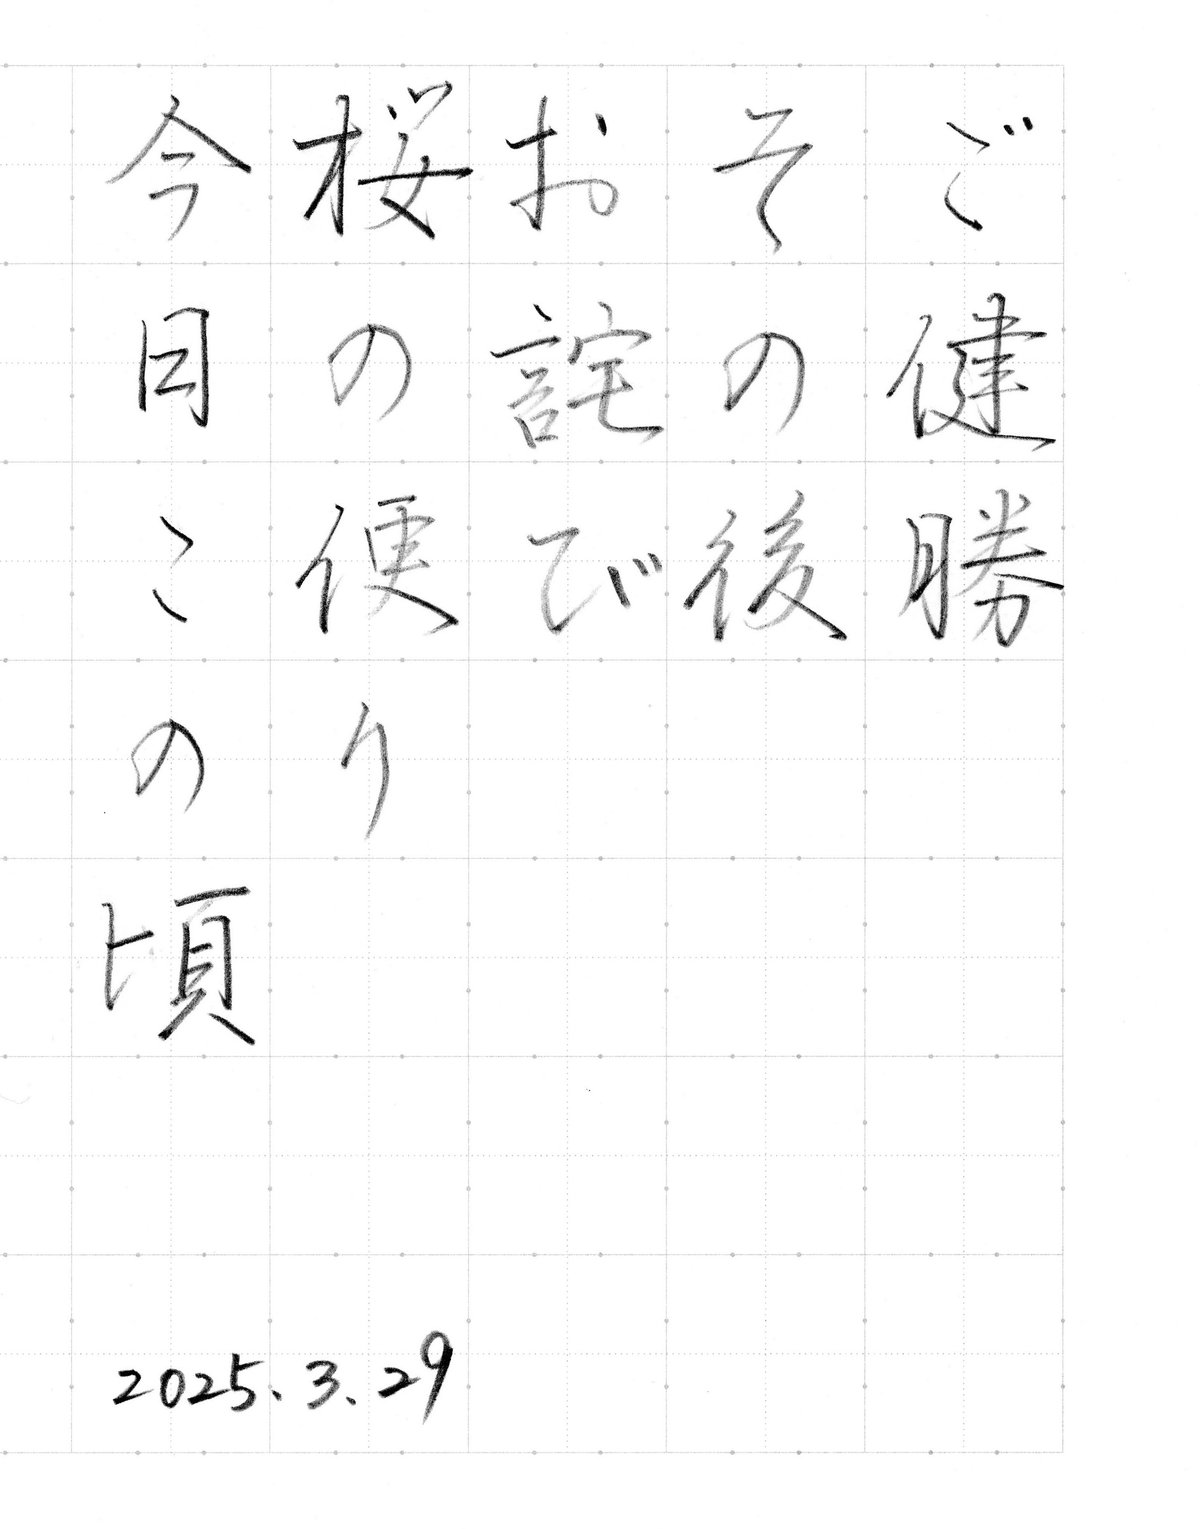 ご健勝
その後
お詫び
桜の便り
今日この頃
2025.3.29